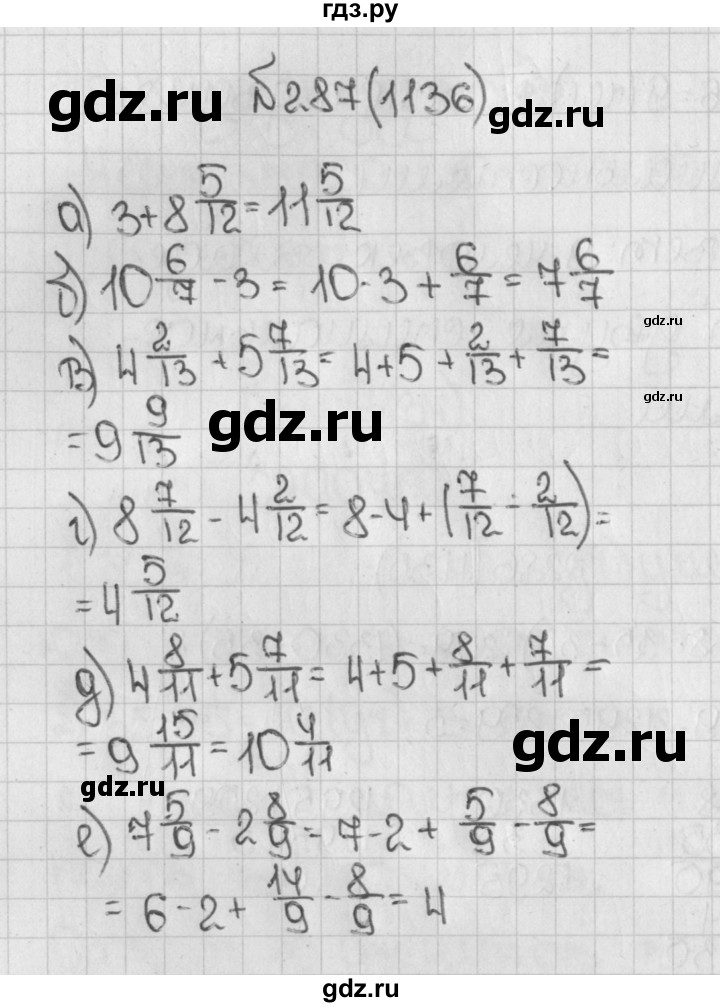 гдз.ру
№287(1136)
gdz.ru
gdz.ru
а) 3+8 5/12 = 11 5/12
б) 10 6/7 - 3 = 10-3 + 6/7 = 7 6/7
gdz.ru
в) 4 2/13 + 5 7/13 = 4+5 + 2/13 + 7/13 =
gdz.ru
= 9 9/13
gdz.ru
г) 8 7/12 - 4 2/12 = 8-4+(7/12 - 2/12) =
= 4 5/12
д) 4 8/11 + 5 7/11 = 4+5 + 8/11 + 7/11 =
= 9 15/11 = 10 4/11
gdz.ru
gdz.ru
е) 7 5/9 - 2 8/9 = 7-2 + 5/9 - 8/9 =
= 6-2+ 14/9 - 8/9 = 4
gdz.ru